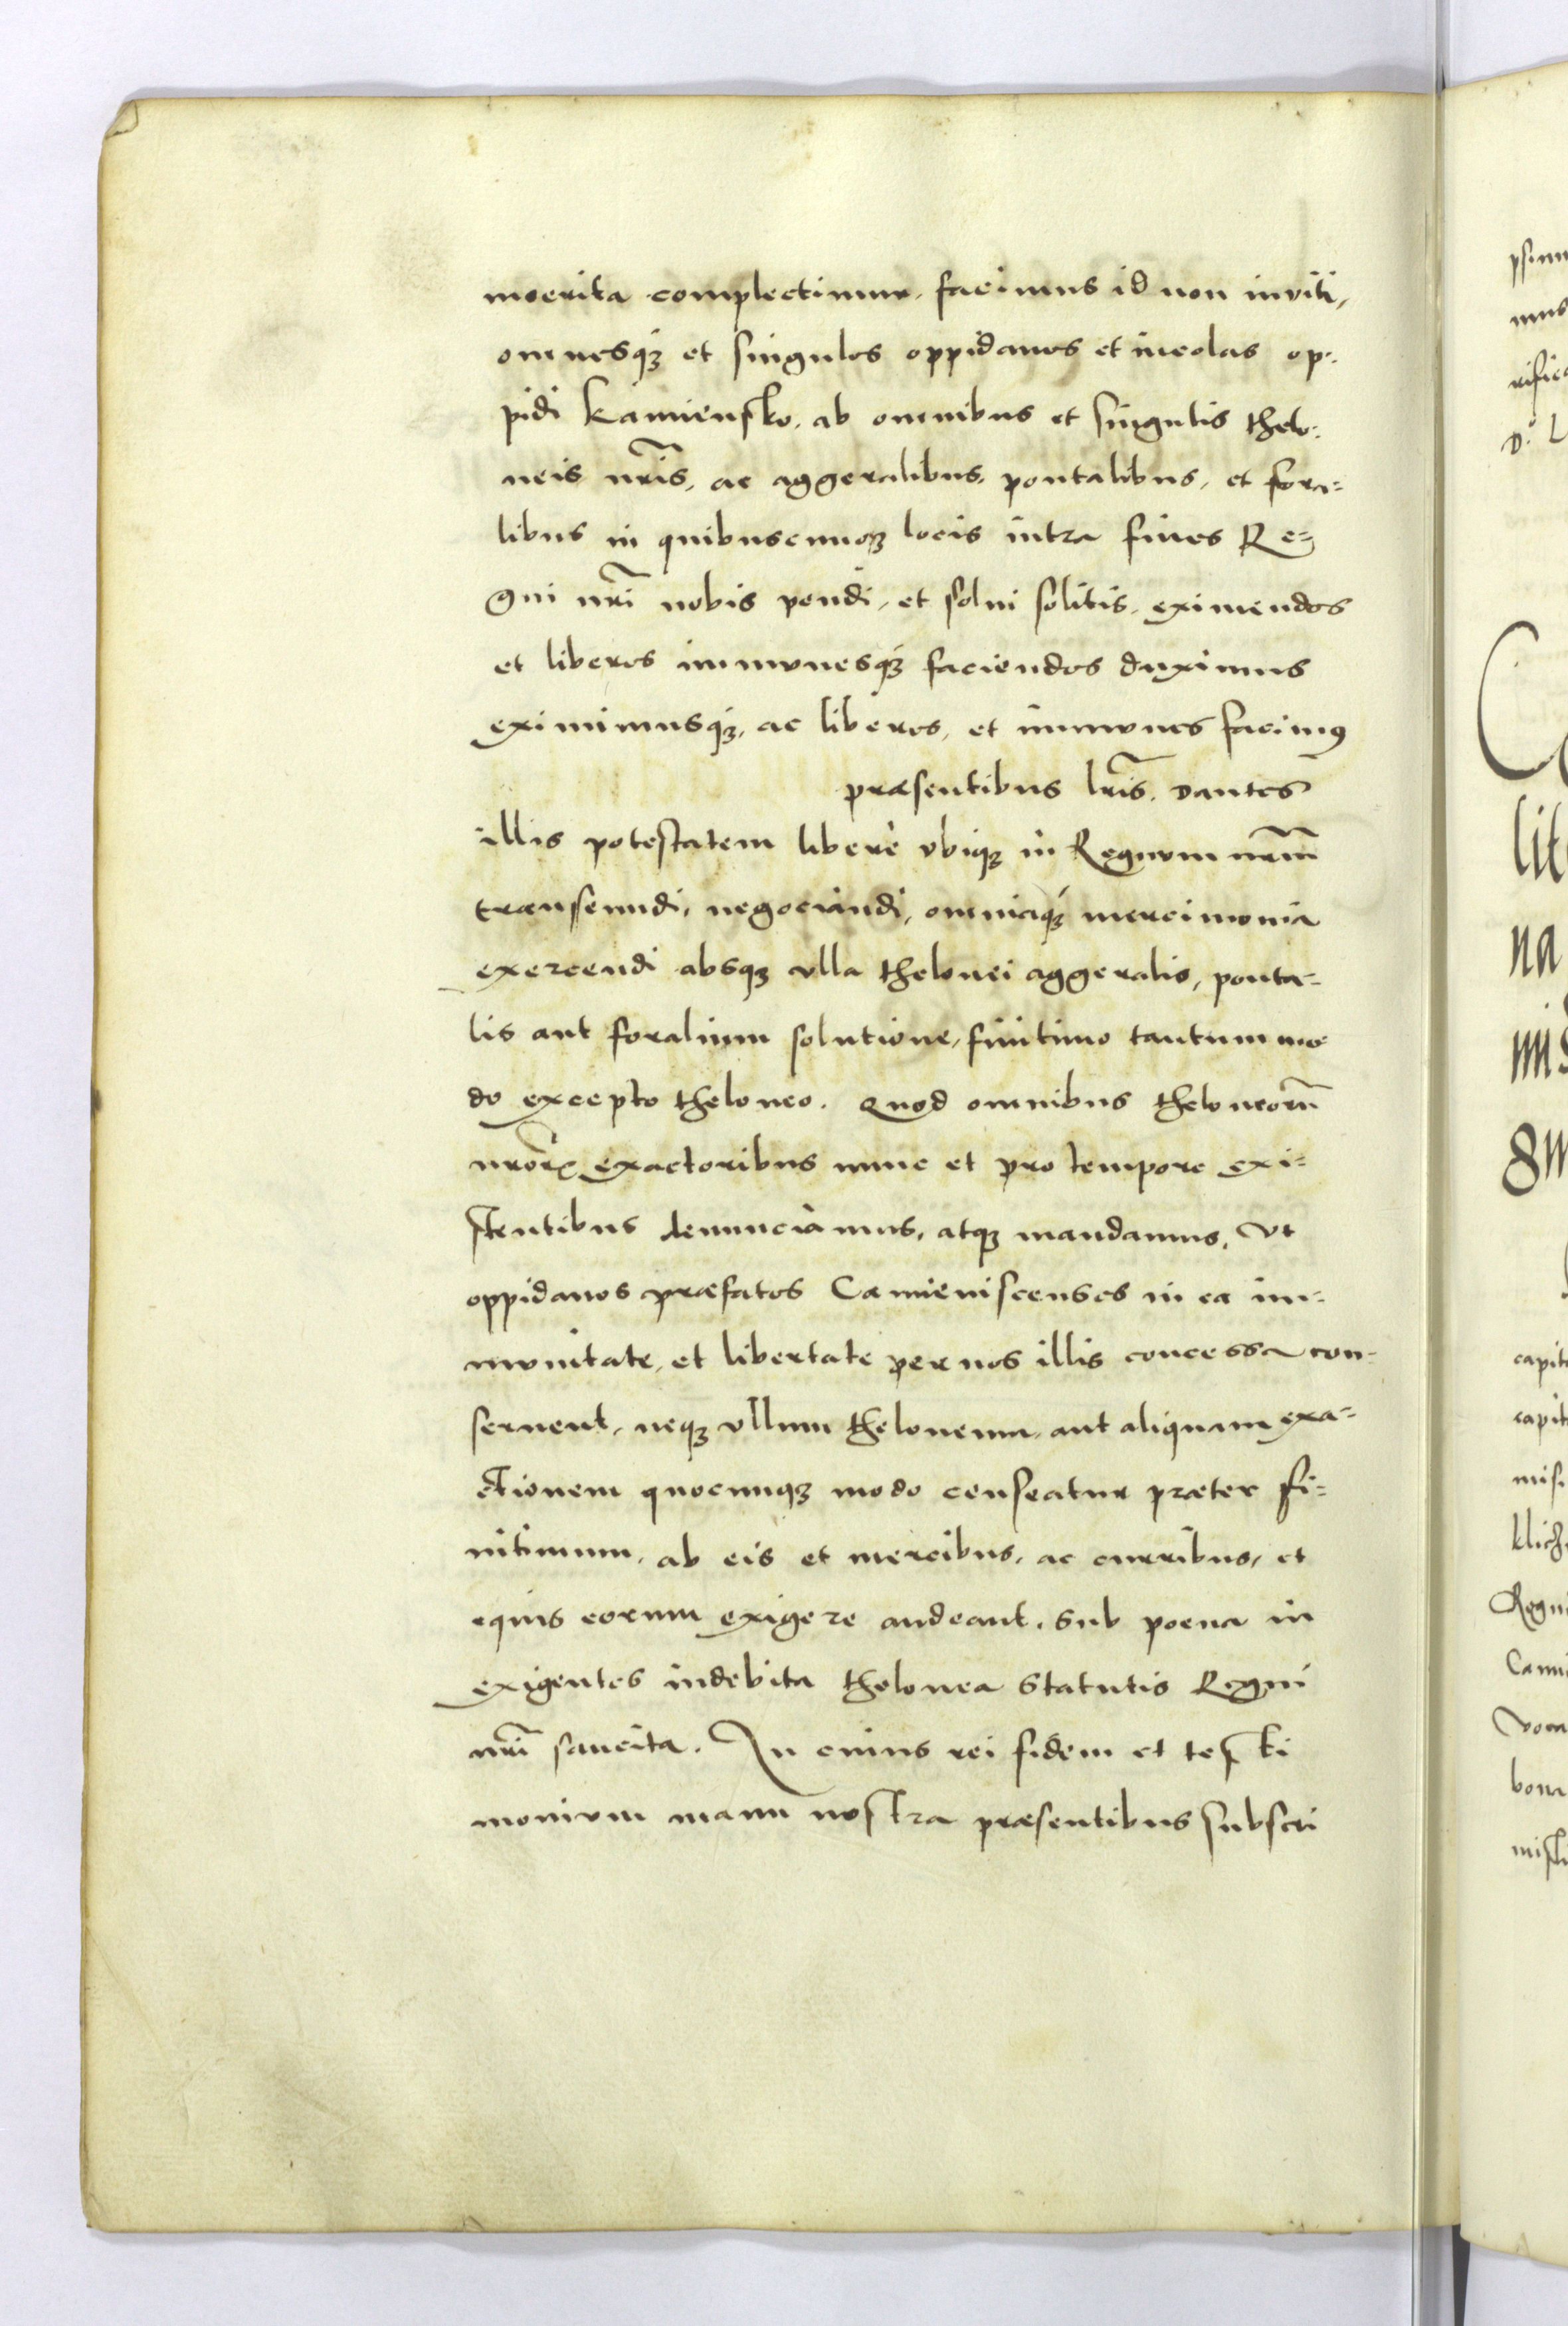 moerita complectimur, facimus id non inviti,
omnesq3 et singulos oppidanos et incolas op-
pidi Kamiensko, ab omnibus et singulis thelo-
neis nr̃is, ac aggeralibus, pontalibus, et fora=
libus in quibuscunq3 locis intra fines Re=
gni nr̃i nobis pendi, et solui solitis, eximendos
et liberos immunesq3 faciendos duximus
eximimusq3, ac liberos, et immunes facim9
præsentibus lr̃is. Dantes
illis potestatem liberè vbiq3 in Regnum nr̃m
transeundi, negociandi, omniaq3 mercimonia
exercendi absq3 vlla thelonei aggeralis, ponta-
lis aut foralium solutione, finitimo tantum mo
do excepto theloneo. Quod omnibus theloneorũ
nror̃ exactoribus nunc et pro tempore exi=
stentibus denunciamus, atq3 mandamus, Vt
oppidanos præfatos Camieniscenses in ea im-
munitate, et libertate per nos illis concessa con-
seruent, neq3 vllum theloneum, aut aliquam exa=
ctionem quocunq3 modo censeatur præter fi=
nitimum, ab eis et mercibus, ac curribus, et
equis eorum exigere audeant, sub poena in
exigentes indebita thelonea Statutis Regni
nr̃i sancita. In cuius rei fidem et testi
monium manu nostra præsentibus subscri
psimu
mus
rifica
D. L
lit
na
capit
capit
Regni
bona